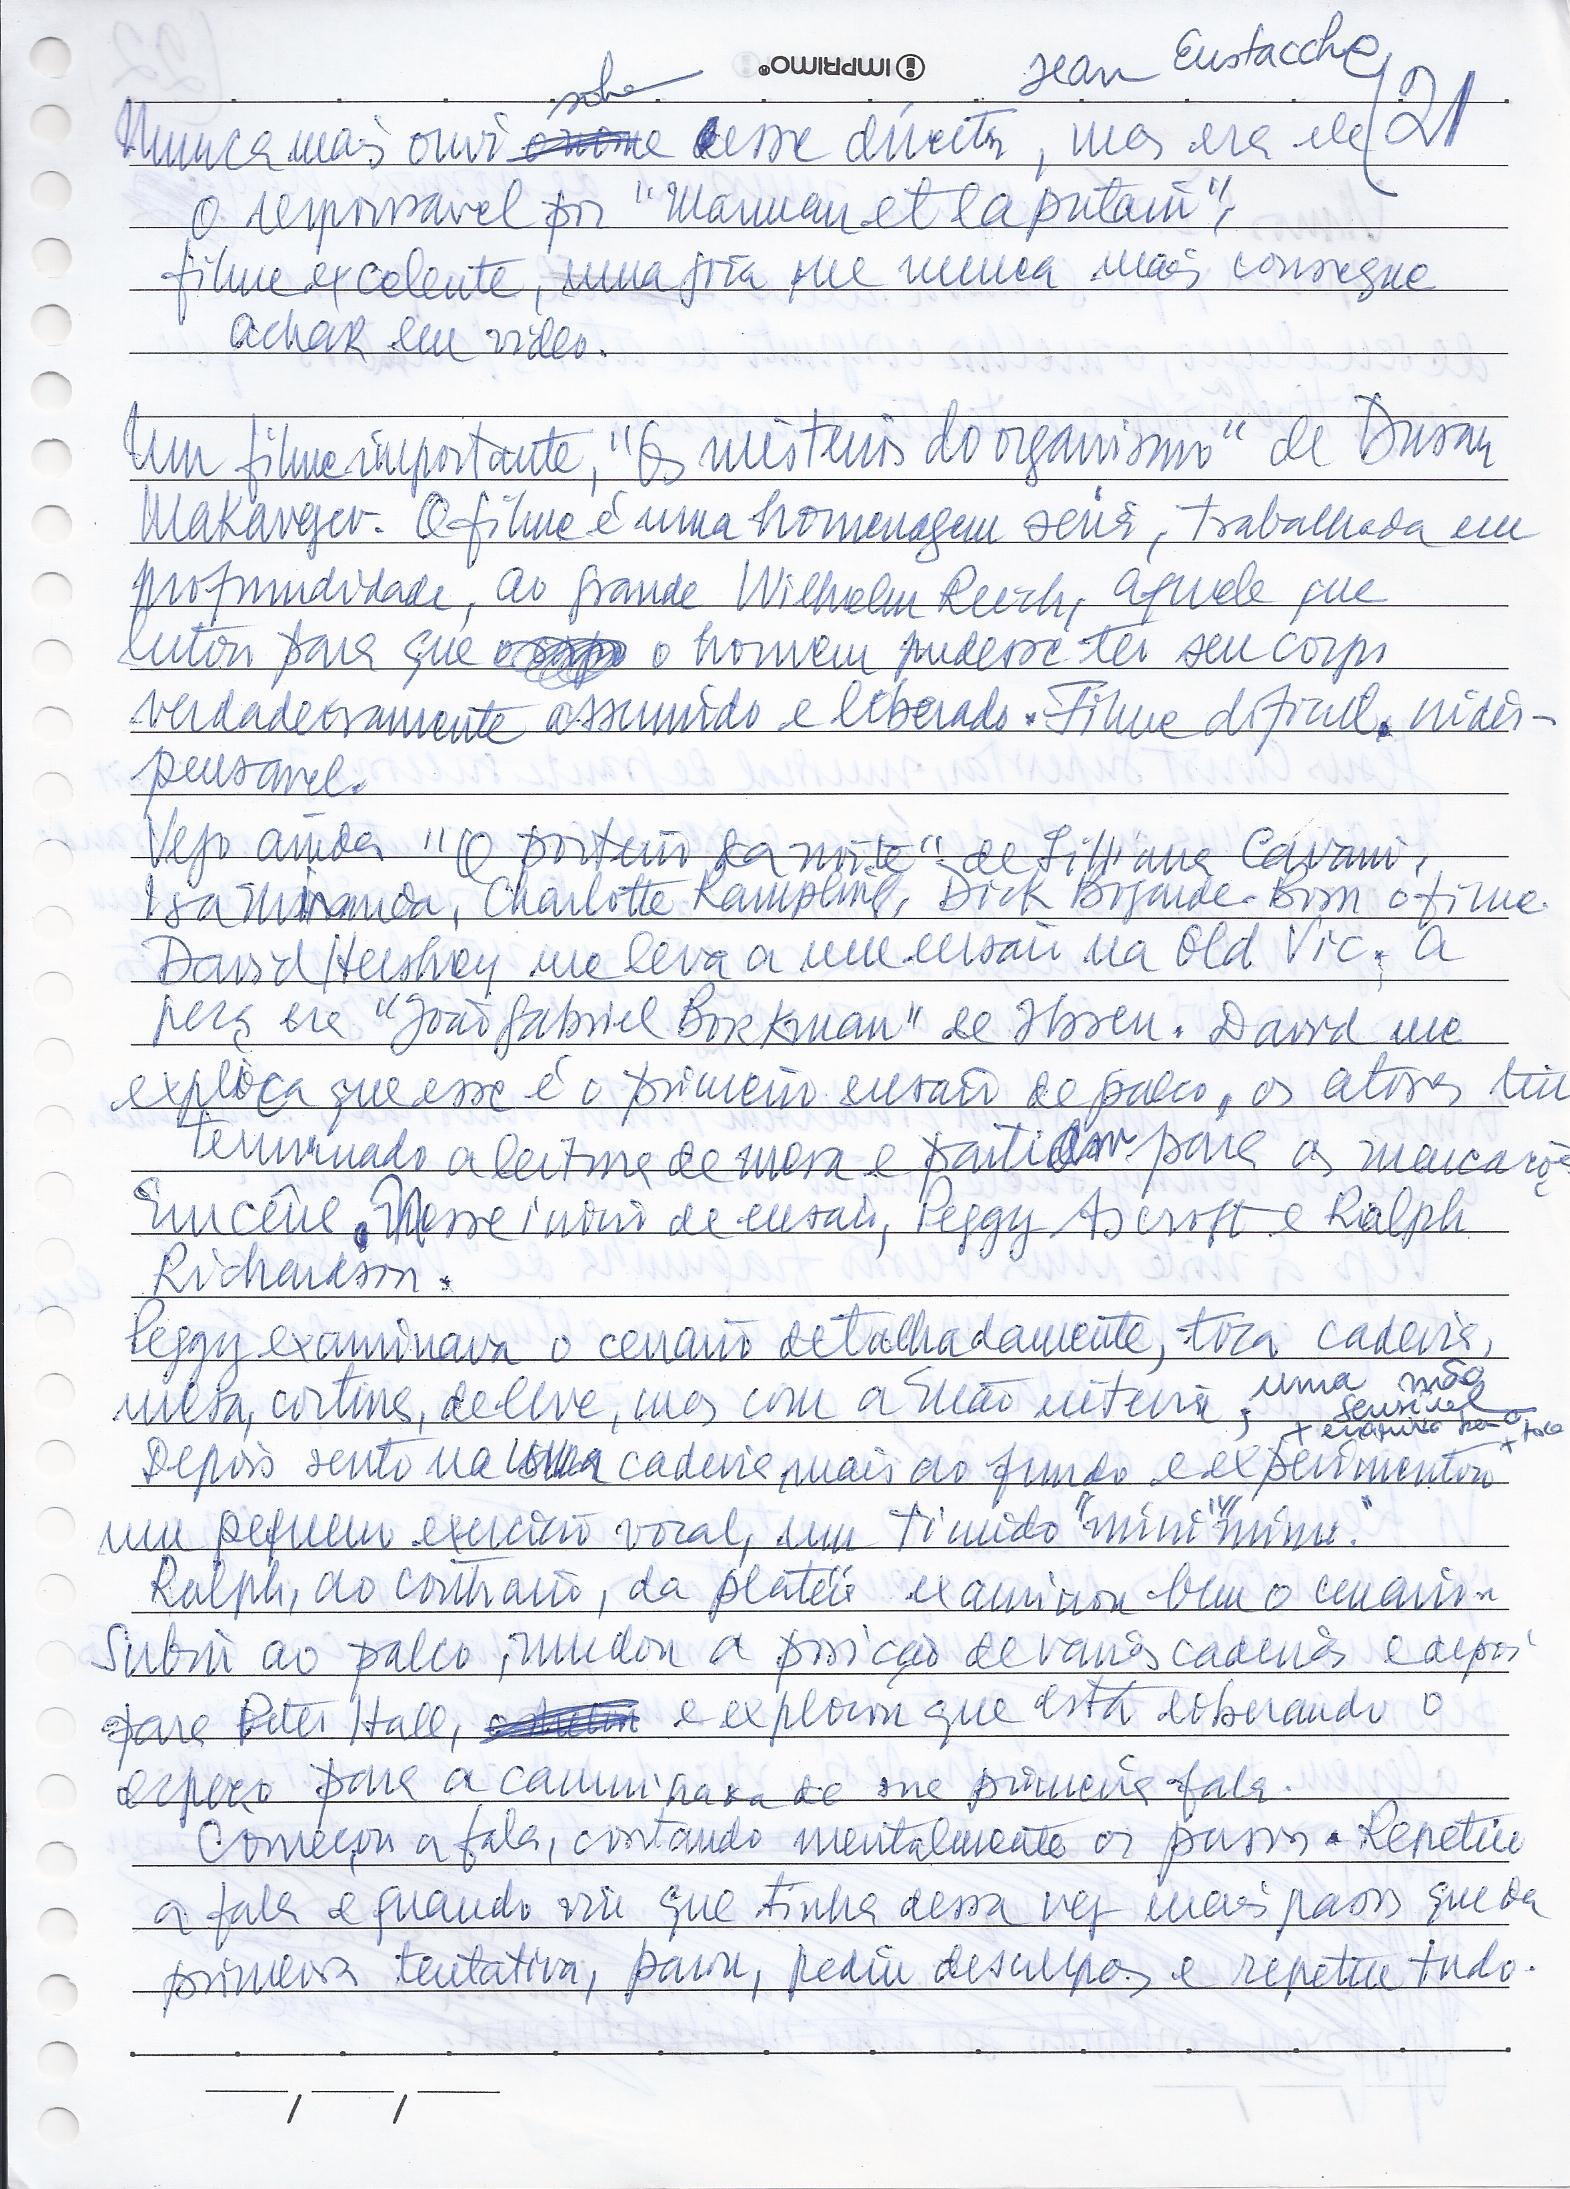 IMPRIMO®
Jean Eustacche
21
sobre
Nunca mais ouvi desse diretor, mas era ele
o responsavel por "Maman et la putain",
filme excelente, uma joia que nunca mais consegue
achar em video.
Um filme importante, "Os misterios do organismo" de Dusan
Makavgev. O filme é uma homenagem séria, trabalhada em
profundidade, ao grande Wilhelm Reich, aquele que
lutou para que o homem pudesse ter seu corpo
verdadeiramente assumido e liberado. Filme dificil, indis-
pensavel.
Vejo ainda "O porteiro da noite" de Lilliana Cavani,
Isa Miranda, Charlotte Rampling, Dick Bogarde. Bom o filme.
David Hershey me leva a um ensaio na Old Vic. A
peça era "João Gabriel Borkman" de Ibsen. David me
explica que esse é o primeiro ensaio de palco, os atores tin
terminado a leitura de mesa e partidar para as marcações
Em cêne. Nesse inicio de ensaio, Peggy Ascroft e Ralph
Richardson.
Peggy examinava o cenario detalhadamente, toca cadeira,
mesa, cortina, de leve, mas com a mão inteira, uma mão
sensivel
Depois sento na uma cadeira mais ao fundo e experimentou
um pequeno exercicio vocal, um timido "mini" "mimi."
Ralph, ao contrario, da platéia examinou bem o cenario.
Subiu ao palco, mudou a posição de varias cadeiras e depois
para Peter Hall, e explicou que está liberando o
espaço para a caminhada de sua primeira fala.
Começou a fala, contando mentalmente os passos. Repetiu
a fala e quando viu que tinha dessa vez mais passos que da
primeira tentativa, parou, pediu desculpas e repetiu tudo.